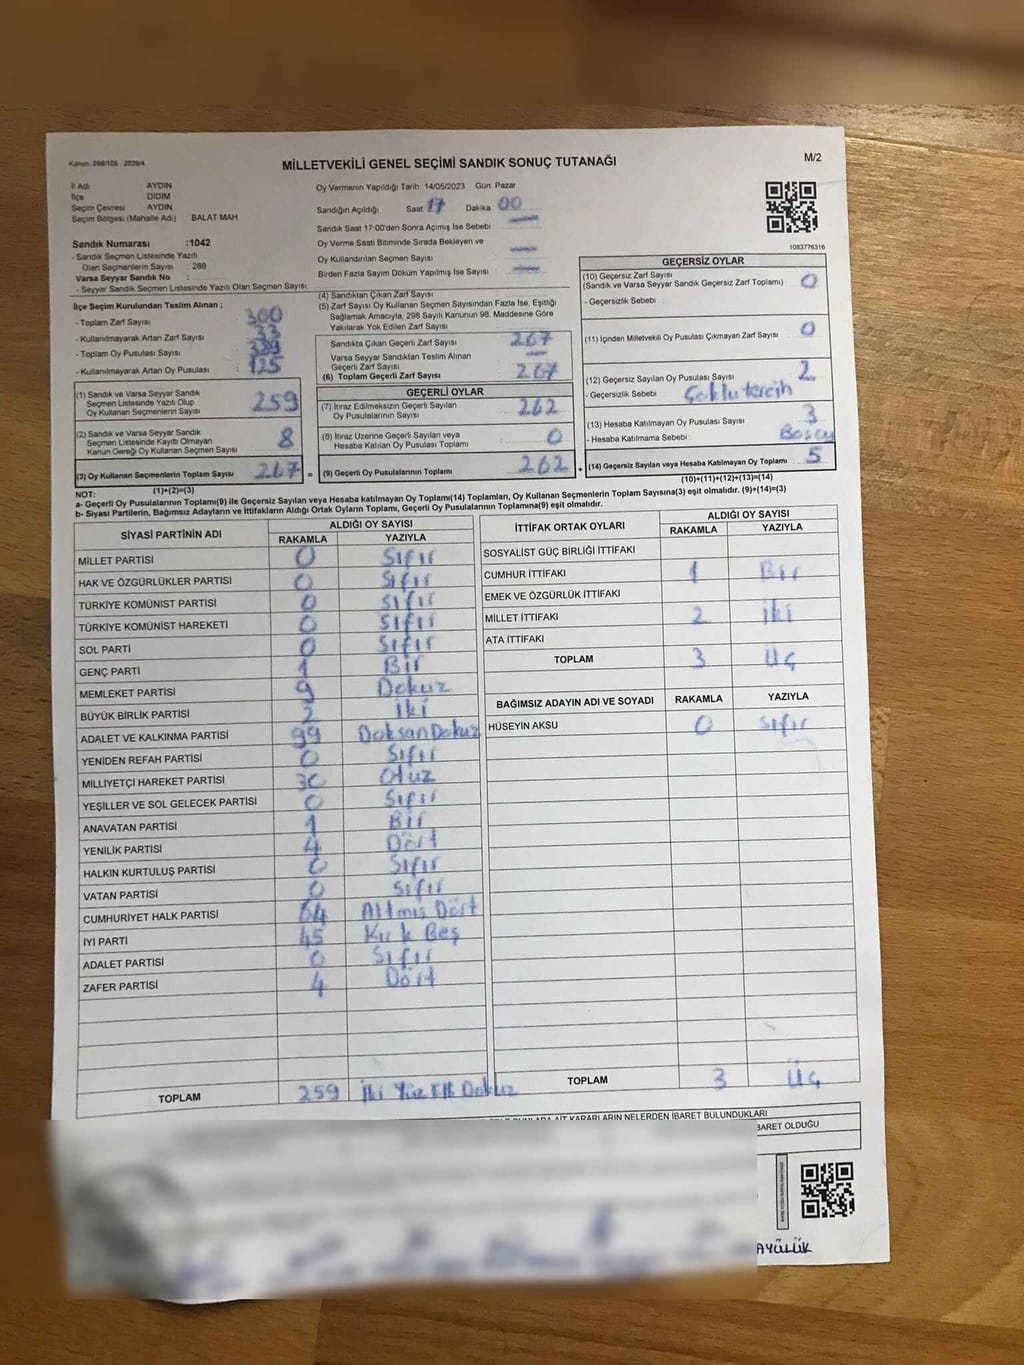 Kanun: 298/105 : 2839/4
MİLLETVEKİLİ GENEL SEÇİMİ SANDIK SONUÇ TUTANAĞI
M/2
İl Adı AYDIN
İlçe DİDİM
Seçim Çevresi AYDIN
Seçim Bölgesi (Mahalle Adı) BALAT MAH
Oy Vermenin Yapıldığı Tarih :14/05/2023 Gün Pazar
Sandığın Açıldığı Saat 17 Dakika 00
Sandık Saat 17:00'den Sonra Açımış İse Sebebi :
Oy Verme Saati Bitiminde Sırada Bekleyen ve
Oy Kullandırılan Seçmen Sayısı :
Birden Fazla Sayım Döküm Yapılmış İse Sayısı :
1083776316
Sandık Numarası :1042
- Sandık Seçmen Listesinde Yazılı
Olan Seçmenlerin Sayısı : 288
Varsa Seyyar Sandık No :
- Seyyar Sandık Seçmen Listesinde Yazılı Olan Seçmen Sayısı:
İlçe Seçim Kurulundan Teslim Alınan ;
- Toplam Zarf Sayısı 300
- Kullanılmayarak Artan Zarf Sayısı 33
- Toplam Oy Pusulası Sayısı 389
- Kullanılmayarak Artan Oy Pusulası 125
(1) Sandık ve Varsa Seyyar Sandık
Seçmen Listesinde Yazılı Olup
Oy Kullanan Seçmenlerin Sayısı 259
(2) Sandık ve Varsa Seyyar Sandık
Seçmen Listesinde Kayıtlı Olmayan
Kanun Gereği Oy Kullanan Seçmen Sayısı 8
(3) Oy Kullanan Seçmenlerin Toplam Sayısı 267 =
(1)+(2)=(3)
(4) Sandıktan Çıkan Zarf Sayısı :
(5) Zarf Sayısı Oy Kullanan Seçmen Sayısından Fazla İse, Eşitliği
Sağlamak Amacıyla, 298 Sayılı Kanunun 98. Maddesine Göre
Yakılarak Yok Edilen Zarf Sayısı :
Sandıkta Çıkan Geçerli Zarf Sayısı 267
Varsa Seyyar Sandıktan Teslim Alınan
Geçerli Zarf Sayısı
(6) Toplam Geçerli Zarf Sayısı 267
GEÇERLİ OYLAR
(7) İtiraz Edilmeksizin Geçerli Sayılan
Oy Pusulalarının Sayısı 262
(8) İtiraz Üzerine Geçerli Sayılan veya
Hesaba Katılan Oy Pusulası Toplamı 0
(9) Geçerli Oy Pusulalarının Toplamı 262 +
GEÇERSİZ OYLAR
(10) Geçersiz Zarf Sayısı
(Sandık ve Varsa Seyyar Sandık Geçersiz Zarf Toplamı) 0
- Geçersizlik Sebebi :
(11) İçinden Milletvekili Oy Pusulası Çıkmayan Zarf Sayısı 0
(12) Geçersiz Sayılan Oy Pusulası Sayısı 2
- Geçersizlik Sebebi : Çoklu tercih
(13) Hesaba Katılmayan Oy Pusulası Sayısı 3
- Hesaba Katılmama Sebebi :
(14) Geçersiz Sayılan veya Hesaba Katılmayan Oy Toplamı 5
(10)+(11)+(12)+(13)=(14)
NOT:
a- Geçerli Oy Pusulalarının Toplamı(9) ile Geçersiz Sayılan veya Hesaba katılmayan Oy Toplamı(14) Toplamları, Oy Kullanan Seçmenlerin Toplam Sayısına(3) eşit olmalıdır. (9)+(14)=(3)
b- Siyasi Partilerin, Bağımsız Adayların ve İttifakların Aldığı Ortak Oyların Toplamı, Geçerli Oy Pusulalarının Toplamına(9) eşit olmalıdır.
SİYASİ PARTİNİN ADI ALDIĞI OY SAYISI
RAKAMLA YAZIYLA
MİLLET PARTİSİ 0 Sıfır
HAK VE ÖZGÜRLÜKLER PARTİSİ 0 Sıfır
TÜRKİYE KOMÜNİST PARTİSİ 0 Sıfır
TÜRKİYE KOMÜNİST HAREKETİ 0 Sıfır
SOL PARTİ 0 Sıfır
GENÇ PARTİ 1 Bir
MEMLEKET PARTİSİ 9 Dokuz
BÜYÜK BİRLİK PARTİSİ 2 İki
ADALET VE KALKINMA PARTİSİ 99 Doksan Dokuz
YENİDEN REFAH PARTİSİ 0 Sıfır
MİLLİYETÇİ HAREKET PARTİSİ 30 Otuz
YEŞİLLER VE SOL GELECEK PARTİSİ 0 Sıfır
ANAVATAN PARTİSİ 1 Bir
YENİLİK PARTİSİ 4 Dört
HALKIN KURTULUŞ PARTİSİ 0 Sıfır
VATAN PARTİSİ 0 Sıfır
CUMHURİYET HALK PARTİSİ 64 Altmış Dört
İYİ PARTİ 45 Kırk Beş
ADALET PARTİSİ 0 Sıfır
ZAFER PARTİSİ 4 Dört
TOPLAM 259 İki Yüz Elli Dokuz
İTTİFAK ORTAK OYLARI ALDIĞI OY SAYISI
RAKAMLA YAZIYLA
SOSYALİST GÜÇ BİRLİĞİ İTTİFAKI
CUMHUR İTTİFAKI 1 Bir
EMEK VE ÖZGÜRLÜK İTTİFAKI
MİLLET İTTİFAKI 2 İki
ATA İTTİFAKI
TOPLAM 3 Üç
BAĞIMSIZ ADAYIN ADI VE SOYADI RAKAMLA YAZIYLA
HÜSEYİN AKSU 0 Sıfır
TOPLAM 3 Üç
AİT KARARLARIN NELERDEN İBARET BULUNDUKLARI
BARET OLDUĞU
AYÜLÜK